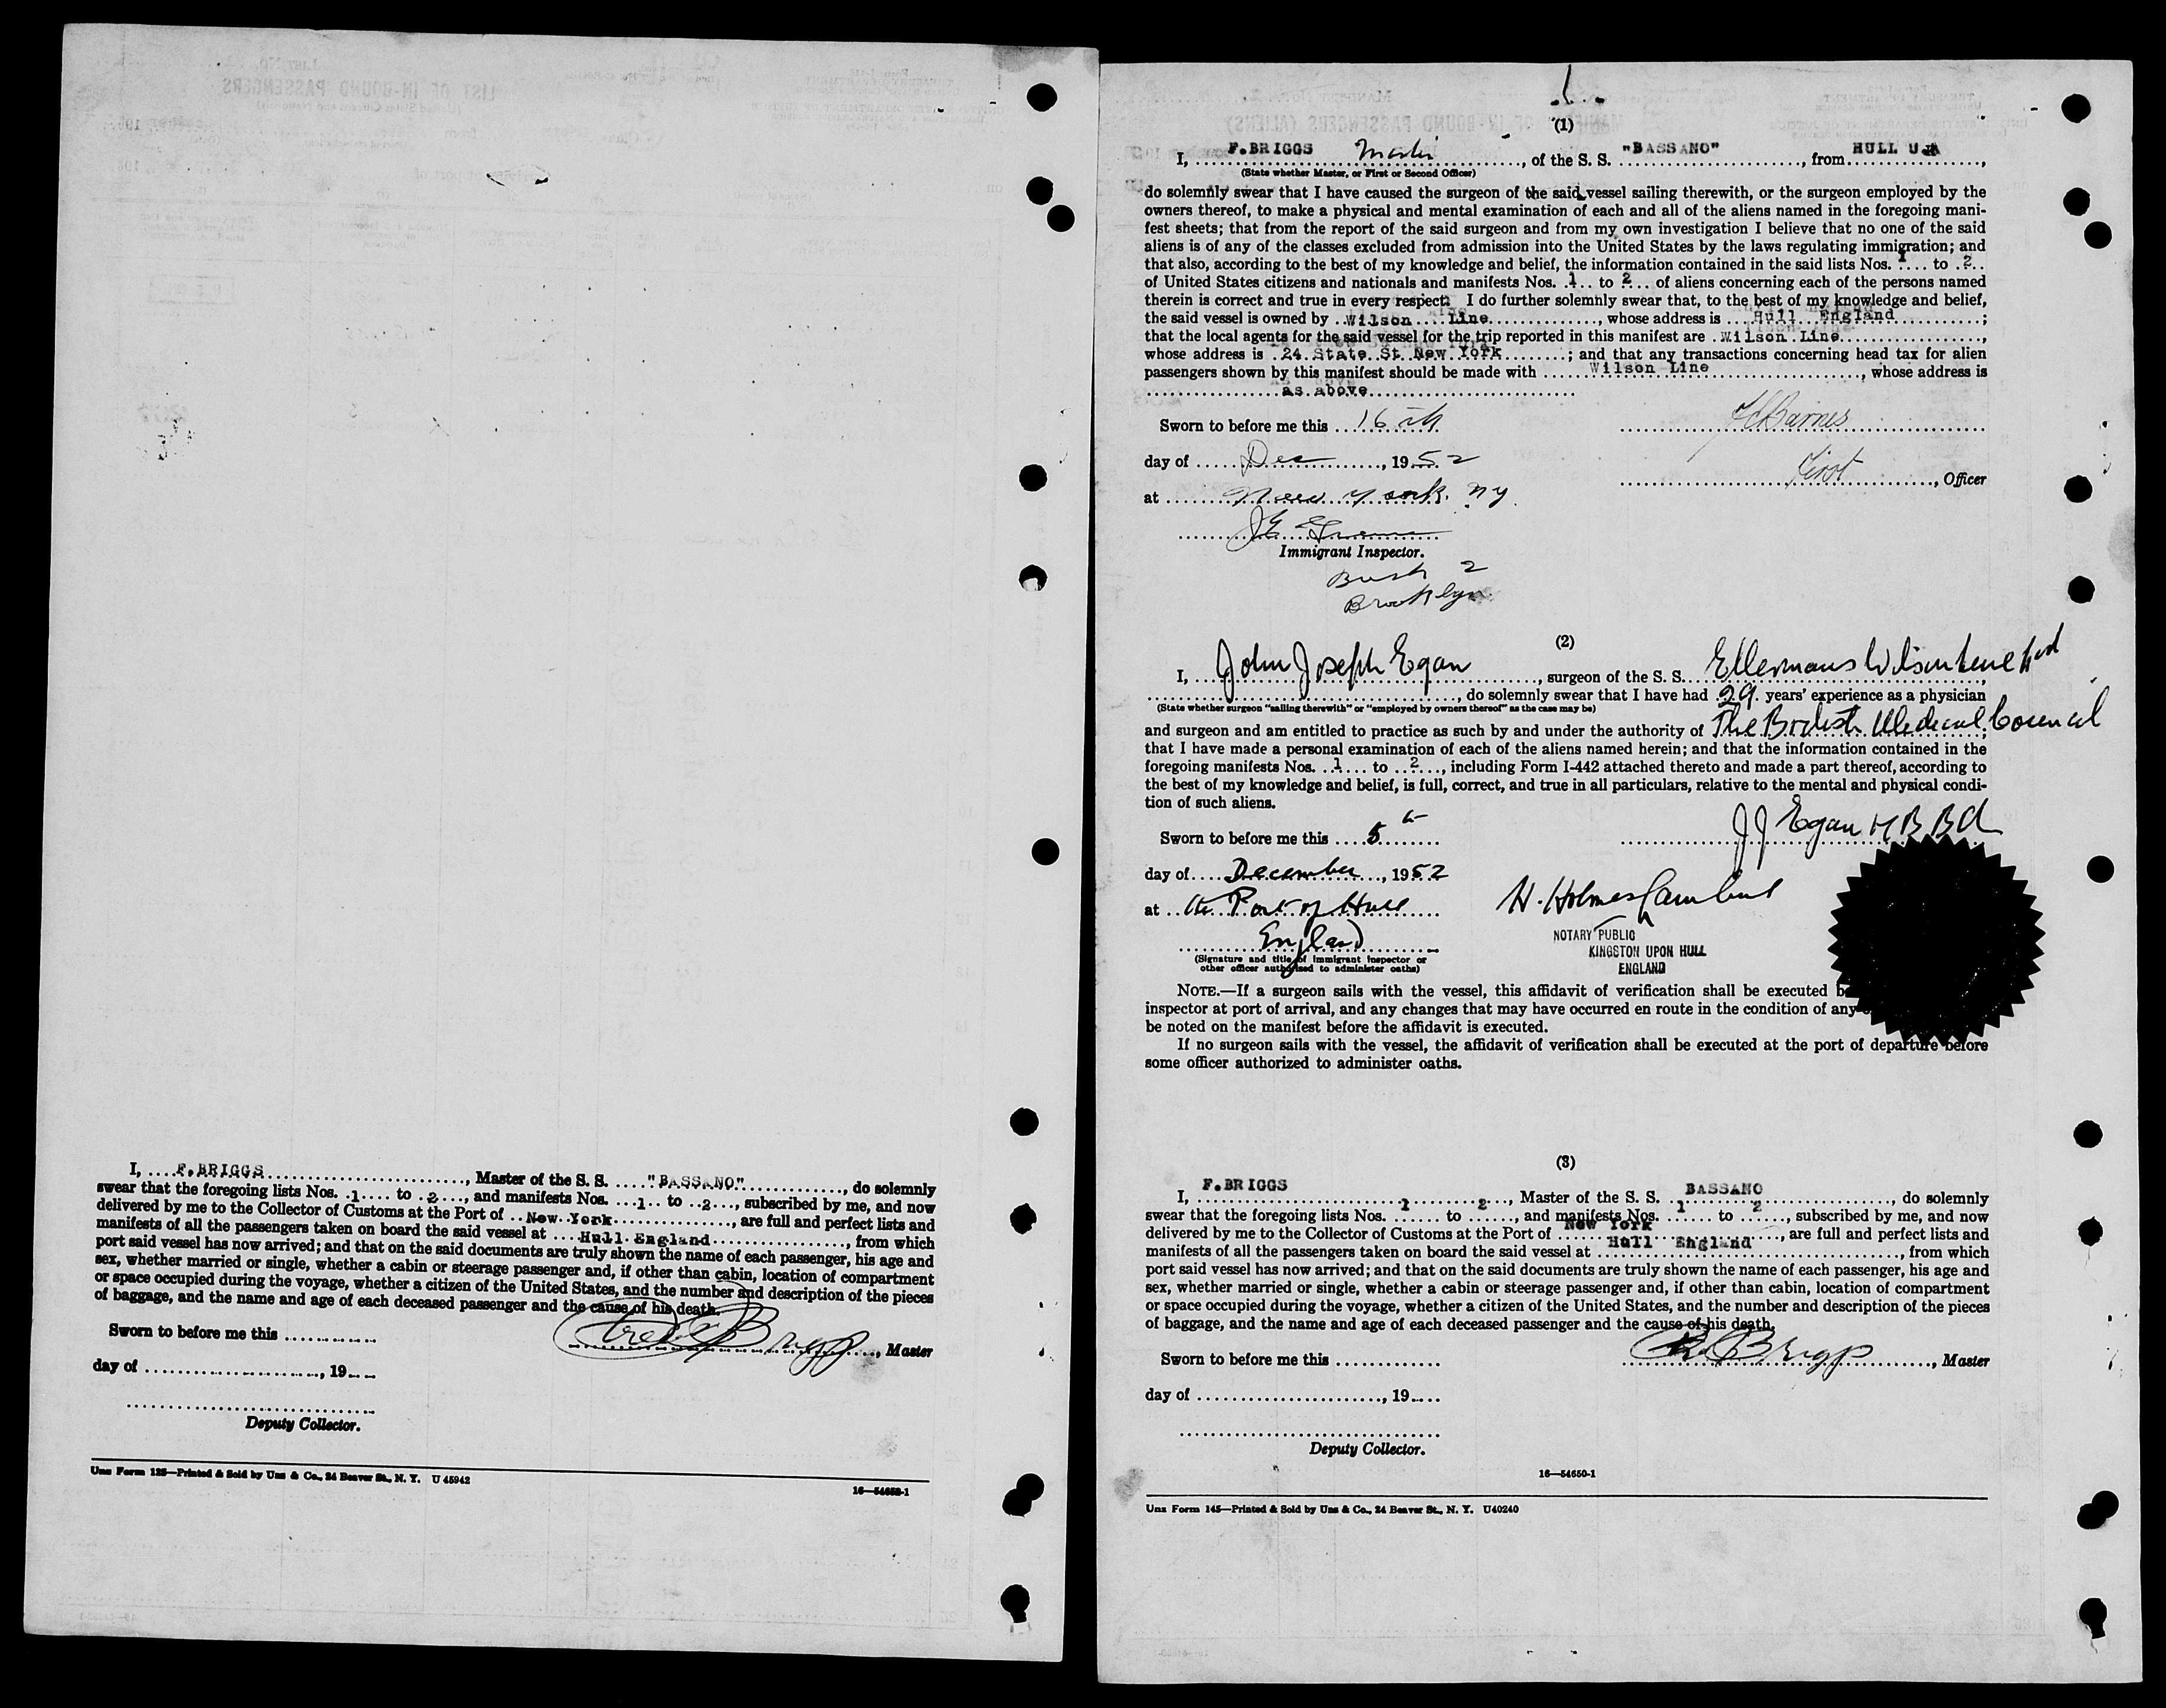 I, ....F.BRIGGS...................................., Master of the S. S. ...."BASSANO"..................., do solemnly
swear that the foregoing lists Nos. .1.... to ..2...., and manifests Nos. ...1.. to ..2..., subscribed by me, and now
delivered by me to the Collector of Customs at the Port of ..New..York....................., are full and perfect lists and
manifests of all the passengers taken on board the said vessel at ....Hull.England........................, from which
port said vessel has now arrived; and that on the said documents are truly shown the name of each passenger, his age and
sex, whether married or single, whether a cabin or steerage passenger and, if other than cabin, location of compartment
or space occupied during the voyage, whether a citizen of the United States, and the number and description of the pieces
of baggage, and the name and age of each deceased passenger and the cause of his death.
Sworn to before me this ..............
Fred Briggs, Master
day of ............................, 19.....
Deputy Collector.
Unz Form 125—Printed & Sold by Unz & Co., 24 Beaver St., N. Y. U 45942
16—54652-1
(1)
I, F.BRIGGS Master, of the S. S. "BASSANO", from HULL U.K,
(State whether Master, or First or Second Officer)
do solemnly swear that I have caused the surgeon of the said vessel sailing therewith, or the surgeon employed by the
owners thereof, to make a physical and mental examination of each and all of the aliens named in the foregoing mani-
fest sheets; that from the report of the said surgeon and from my own investigation I believe that no one of the said
aliens is of any of the classes excluded from admission into the United States by the laws regulating immigration; and
that also, according to the best of my knowledge and belief, the information contained in the said lists Nos. 1.... to .2..
of United States citizens and nationals and manifests Nos. .1.. to 2... of aliens concerning each of the persons named
therein is correct and true in every respect. I do further solemnly swear that, to the best of my knowledge and belief,
the said vessel is owned by ..Wilson....Line................, whose address is ....Hull..England................;
that the local agents for the said vessel for the trip reported in this manifest are .Wilson.Line....................,
whose address is .24.State.St.New.York..........; and that any transactions concerning head tax for alien
passengers shown by this manifest should be made with .......Wilson Line..........................., whose address is
as above
Sworn to before me this ...16th
day of .....Dec..............., 1952
First, Officer
at New York. NY.
Immigrant Inspector.
Bush 2
Brooklyn
(2)
I, John Joseph Egan, surgeon of the S. S. Ellermans Wilson Line Ltd
, do solemnly swear that I have had 29 years' experience as a physician
(State whether surgeon "sailing therewith" or "employed by owners thereof" as the case may be)
and surgeon and am entitled to practice as such by and under the authority of The British Medical Council;
that I have made a personal examination of each of the aliens named herein; and that the information contained in the
foregoing manifests Nos. ..1.... to ..2...., including Form I-442 attached thereto and made a part thereof, according to
the best of my knowledge and belief, is full, correct, and true in all particulars, relative to the mental and physical condi-
tion of such aliens.
Sworn to before me this ....5th
J J Egan
day of....December...., 1952
at the Port of Hull
England
NOTARY PUBLIC
KINGSTON UPON HULL
ENGLAND
(Signature and title of immigrant inspector or
other officer authorized to administer oaths)
NOTE.—If a surgeon sails with the vessel, this affidavit of verification shall be executed
inspector at port of arrival, and any changes that may have occurred en route in the condition of any
be noted on the manifest before the affidavit is executed.
If no surgeon sails with the vessel, the affidavit of verification shall be executed at the port of departure before
some officer authorized to administer oaths.
(3)
I, F.BRIGGS, Master of the S. S. BASSANO, do solemnly
swear that the foregoing lists Nos. 1 to 2, and manifests Nos. 1 to 2, subscribed by me, and now
delivered by me to the Collector of Customs at the Port of New York, are full and perfect lists and
manifests of all the passengers taken on board the said vessel at Hull England, from which
port said vessel has now arrived; and that on the said documents are truly shown the name of each passenger, his age and
sex, whether married or single, whether a cabin or steerage passenger and, if other than cabin, location of compartment
or space occupied during the voyage, whether a citizen of the United States, and the number and description of the pieces
of baggage, and the name and age of each deceased passenger and the cause of his death.
Sworn to before me this ..............
Briggs, Master
day of ............................, 19.....
Deputy Collector.
16—54650-1
Unz Form 145—Printed & Sold by Unz & Co., 24 Beaver St., N. Y. U40240